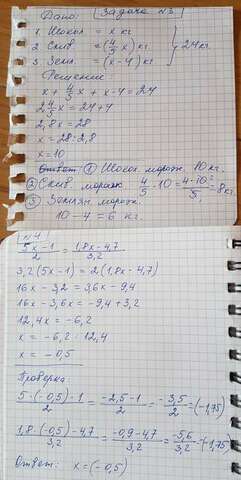 Дано: Задача №3
1 Шокол = x кг
2 Слив = (4/5 x) кг } 24 кг.
3 Земл = (x-4) кг
Решение
x + 4/5 x + x-4 = 24
2 4/5 x = 24+4
2,8x = 28
x = 28:2,8
x = 10
Ответ: ① Шокол морож. 10 кг.
② Слив. морож 4/5 · 10 = 4·10/5 = 8 кг.
③ Землян. морож.
10 - 4 = 6 кг.
№4
5x-1/2 = 1,8x-4,7/3,2
3,2(5x-1) = 2(1,8x-4,7)
16x - 3,2 = 3,6x - 9,4
16x - 3,6x = -9,4 + 3,2
12,4x = -6,2
x = -6,2 : 12,4
x = -0,5
Проверка
5·(-0,5)-1/2 = -2,5-1/2 = -3,5/2 = (-1,75)
1,8·(-0,5)-4,7/3,2 = -0,9-4,7/3,2 = -5,6/3,2 = (-1,75)
Ответ: x = (-0,5)